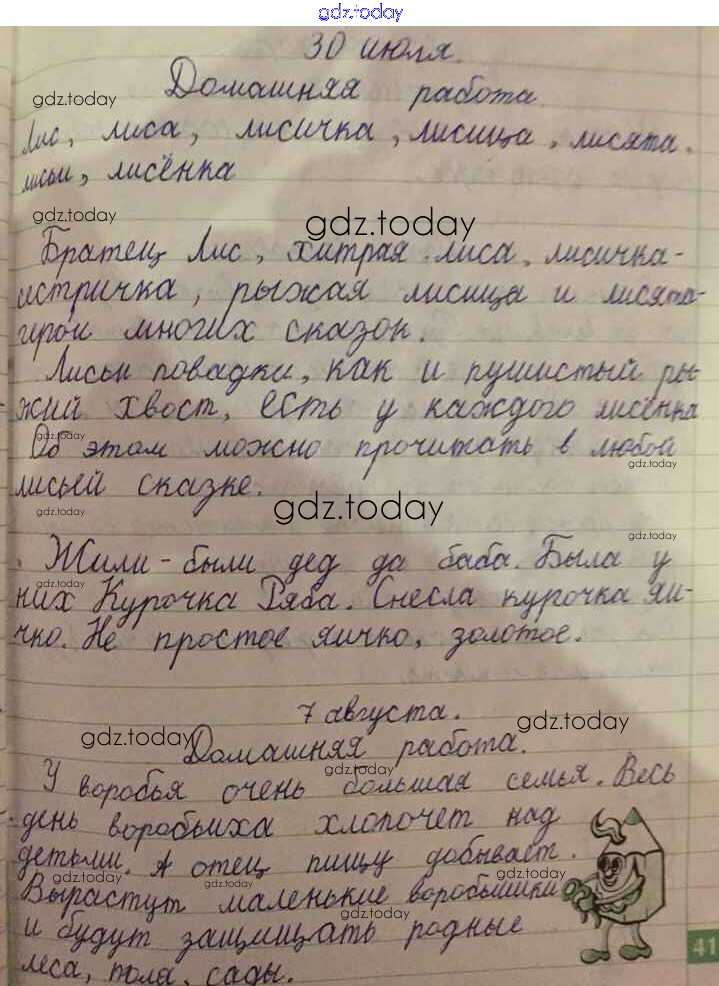 gdz.today
30 июля.
gdz.today
Домашняя работа.
Лис, лиса, лисичка, лисица, лисята.
лисьи, лисёнка
gdz.today
gdz.today
Братец Лис, хитрая лиса, лисичка-
истричка, рыжая лисица и лисята-
герои многих сказок.
Лисьи повадки, как и пушистый ры-
жий хвост, есть у каждого лисёнка
gdz.today
Об этом можно прочитать в любой
gdz.today
лисьей сказке.
gdz.today
gdz.today
gdz.today
Жили-были дед да баба. Была у
gdz.today
них Курочка Ряба. Снесла курочка яи-
чко. Не простое яичко, золотое.
7 августа.
gdz.today
gdz.today
Домашняя работа.
gdz.today
У воробья очень большая семья. Весь
день воробьиха хлопочет над
детьми. А отец пищу добывает.
gdz.today
gdz.today
Вырастут маленькие воробьишки
gdz.today
и будут защищать родные
gdz.today
леса, поля, сады.
41